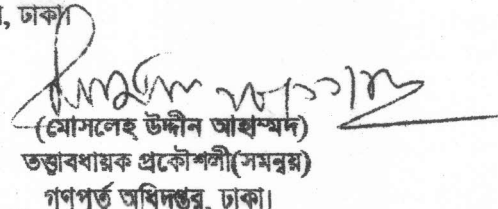 , ঢাকা।
(মোসলেহ উদ্দীন আহাম্মদ)
তত্ত্বাবধায়ক প্রকৌশলী(সমন্বয়)
গণপূর্ত অধিদপ্তর, ঢাকা।